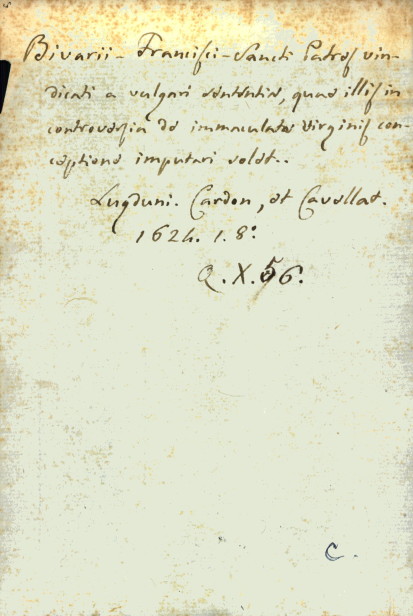 Bivarii - Francisci - Sancti Patres vin-
dicati a vulgari sententia, quae illis in
controversia de immaculatae Virginis con-
ceptione imputari solet..
Lugduni. Cardon, et Cavellat.
1624. 1. 8º
Q. X. 56.
C.